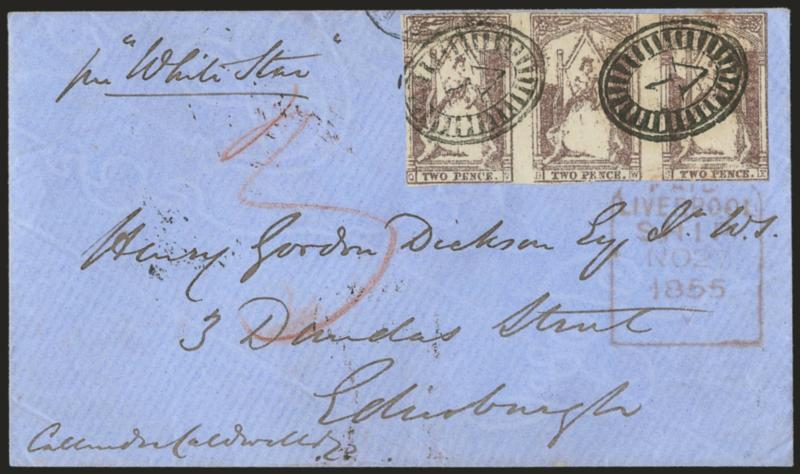 per "White Star"
TWO PENCE. TWO PENCE. TWO PENCE.
PAID
LIVERPOOL
SHIP
NO27
1855
Henry Gordon Dickson Esq W.S.
3 Dundas Street
Edinburgh
Callender Caldwell &